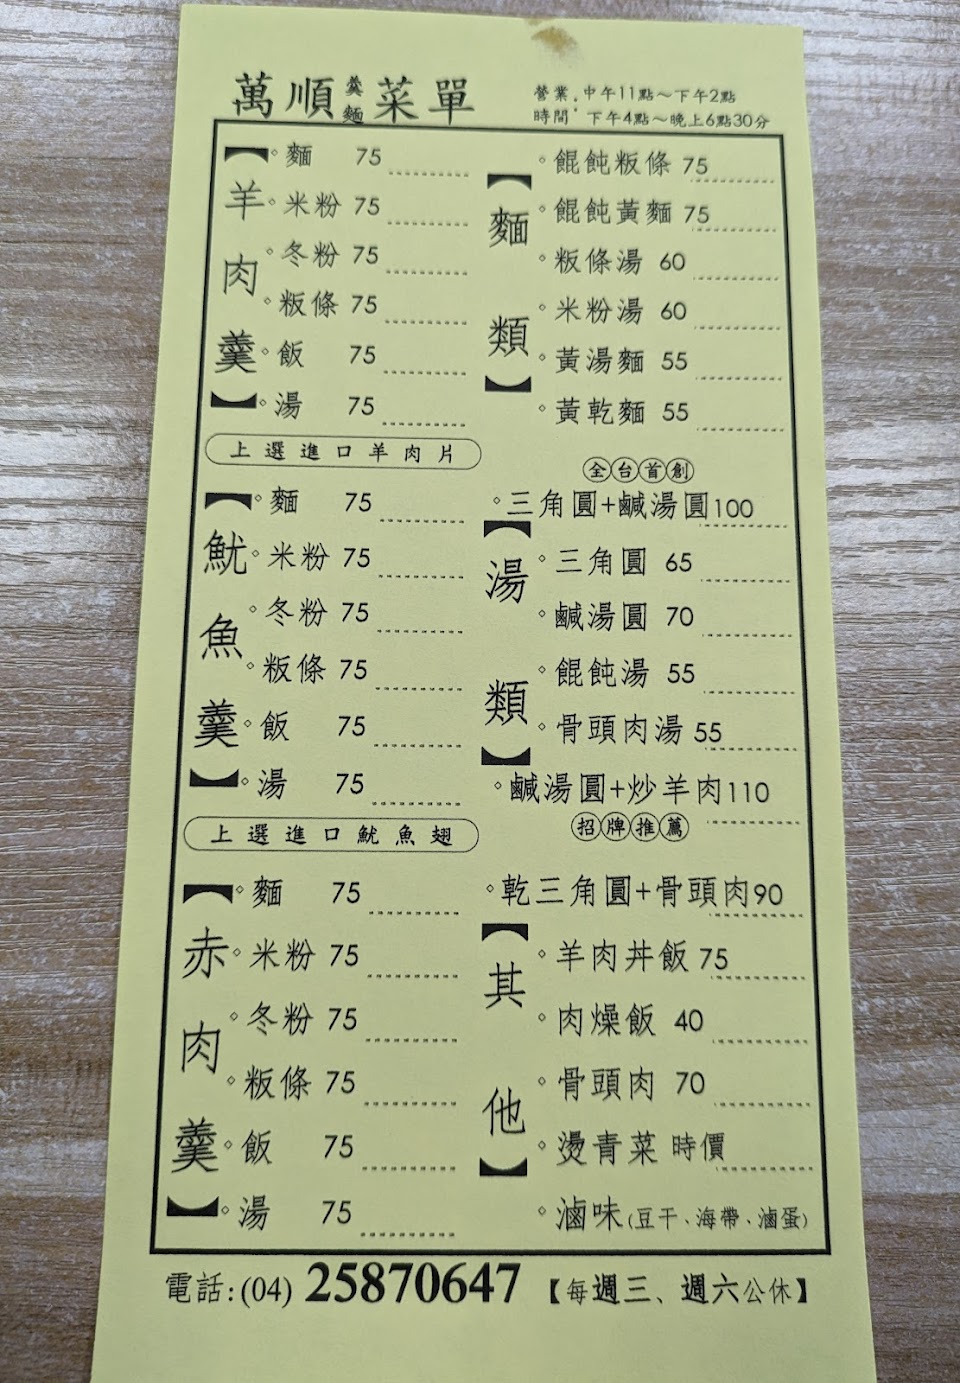 萬順羹麵菜單
營業時間: 中午11點~下午2點
下午4點~晚上6點30分
【羊肉羹】
麵 75
米粉 75
冬粉 75
粄條 75
飯 75
湯 75
上選進口羊肉片
【魷魚羹】
麵 75
米粉 75
冬粉 75
粄條 75
飯 75
湯 75
上選進口魷魚翅
【赤肉羹】
麵 75
米粉 75
冬粉 75
粄條 75
飯 75
湯 75
【麵類】
餛飩粄條 75
餛飩黃麵 75
粄條湯 60
米粉湯 60
黃湯麵 55
黃乾麵 55
全台首創
三角圓+鹹湯圓100
【湯類】
三角圓 65
鹹湯圓 70
餛飩湯 55
骨頭肉湯 55
鹹湯圓+炒羊肉110
招牌推薦
乾三角圓+骨頭肉90
【其他】
羊肉丼飯 75
肉燥飯 40
骨頭肉 70
燙青菜 時價
滷味(豆干、海帶、滷蛋)
電話:(04) 25870647 【每週三、週六公休】